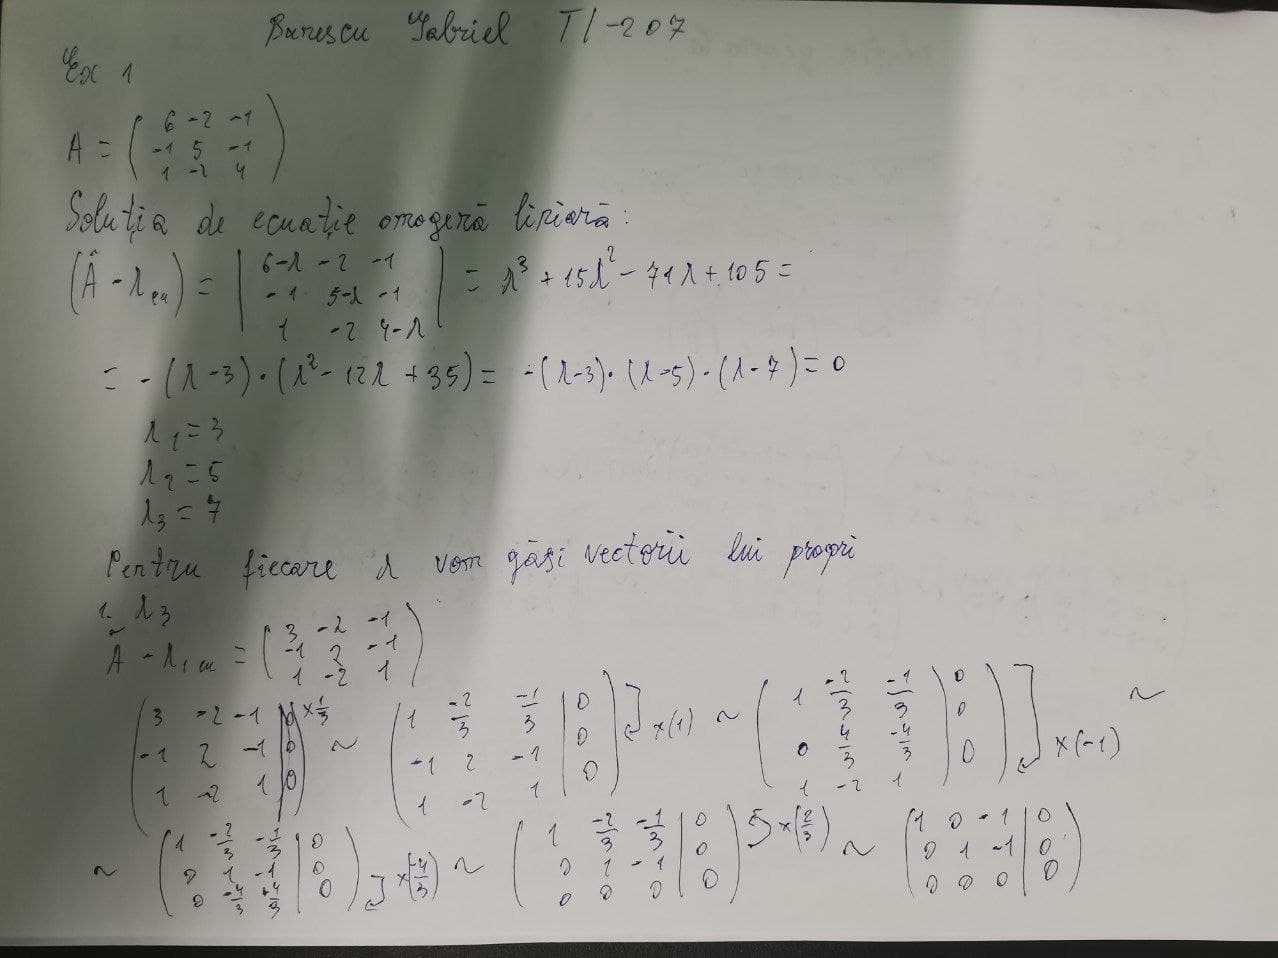 Burescu Gabriel TI-207
Ex 1
A = ( 6 -2 -1
-1 5 -1
1 -2 4 )
Soluția de ecuație omogenă liniară:
(Â - λ_en) = | 6-λ -2 -1
-1 5-λ -1
1 -2 4-λ | = λ³ + 15λ² - 71λ + 105 =
= -(λ-3)·(λ²-12λ+35) = -(λ-3)·(λ-5)·(λ-7) = 0
λ₁ = 3
λ₂ = 5
λ₃ = 7
Pentru fiecare λ vom găsi vectorii lui propri
1. λ₃
Ã - λ₁ en = ( 3 -2 -1
-1 2 -1
1 -2 1 )
( 3 -2 -1 | 0 ×1/3
-1 2 -1 | 0
1 -2 1 | 0 ) ~ ( 1 -2/3 -1/3 | 0
-1 2 -1 | 0
1 -2 1 | 0 ) ×(1) ~ ( 1 -2/3 -1/3 | 0
0 4/3 -4/3 | 0
1 -2 1 | 0 ) ×(-1) ~
~ ( 1 -2/3 -1/3 | 0
0 1 -1 | 0
0 -4/3 +4/3 | 0 ) ×(-4/3) ~ ( 1 -2/3 -1/3 | 0
0 1 -1 | 0
0 0 0 | 0 ) ×(2/3) ~ ( 1 0 -1 | 0
0 1 -1 | 0
0 0 0 | 0 )